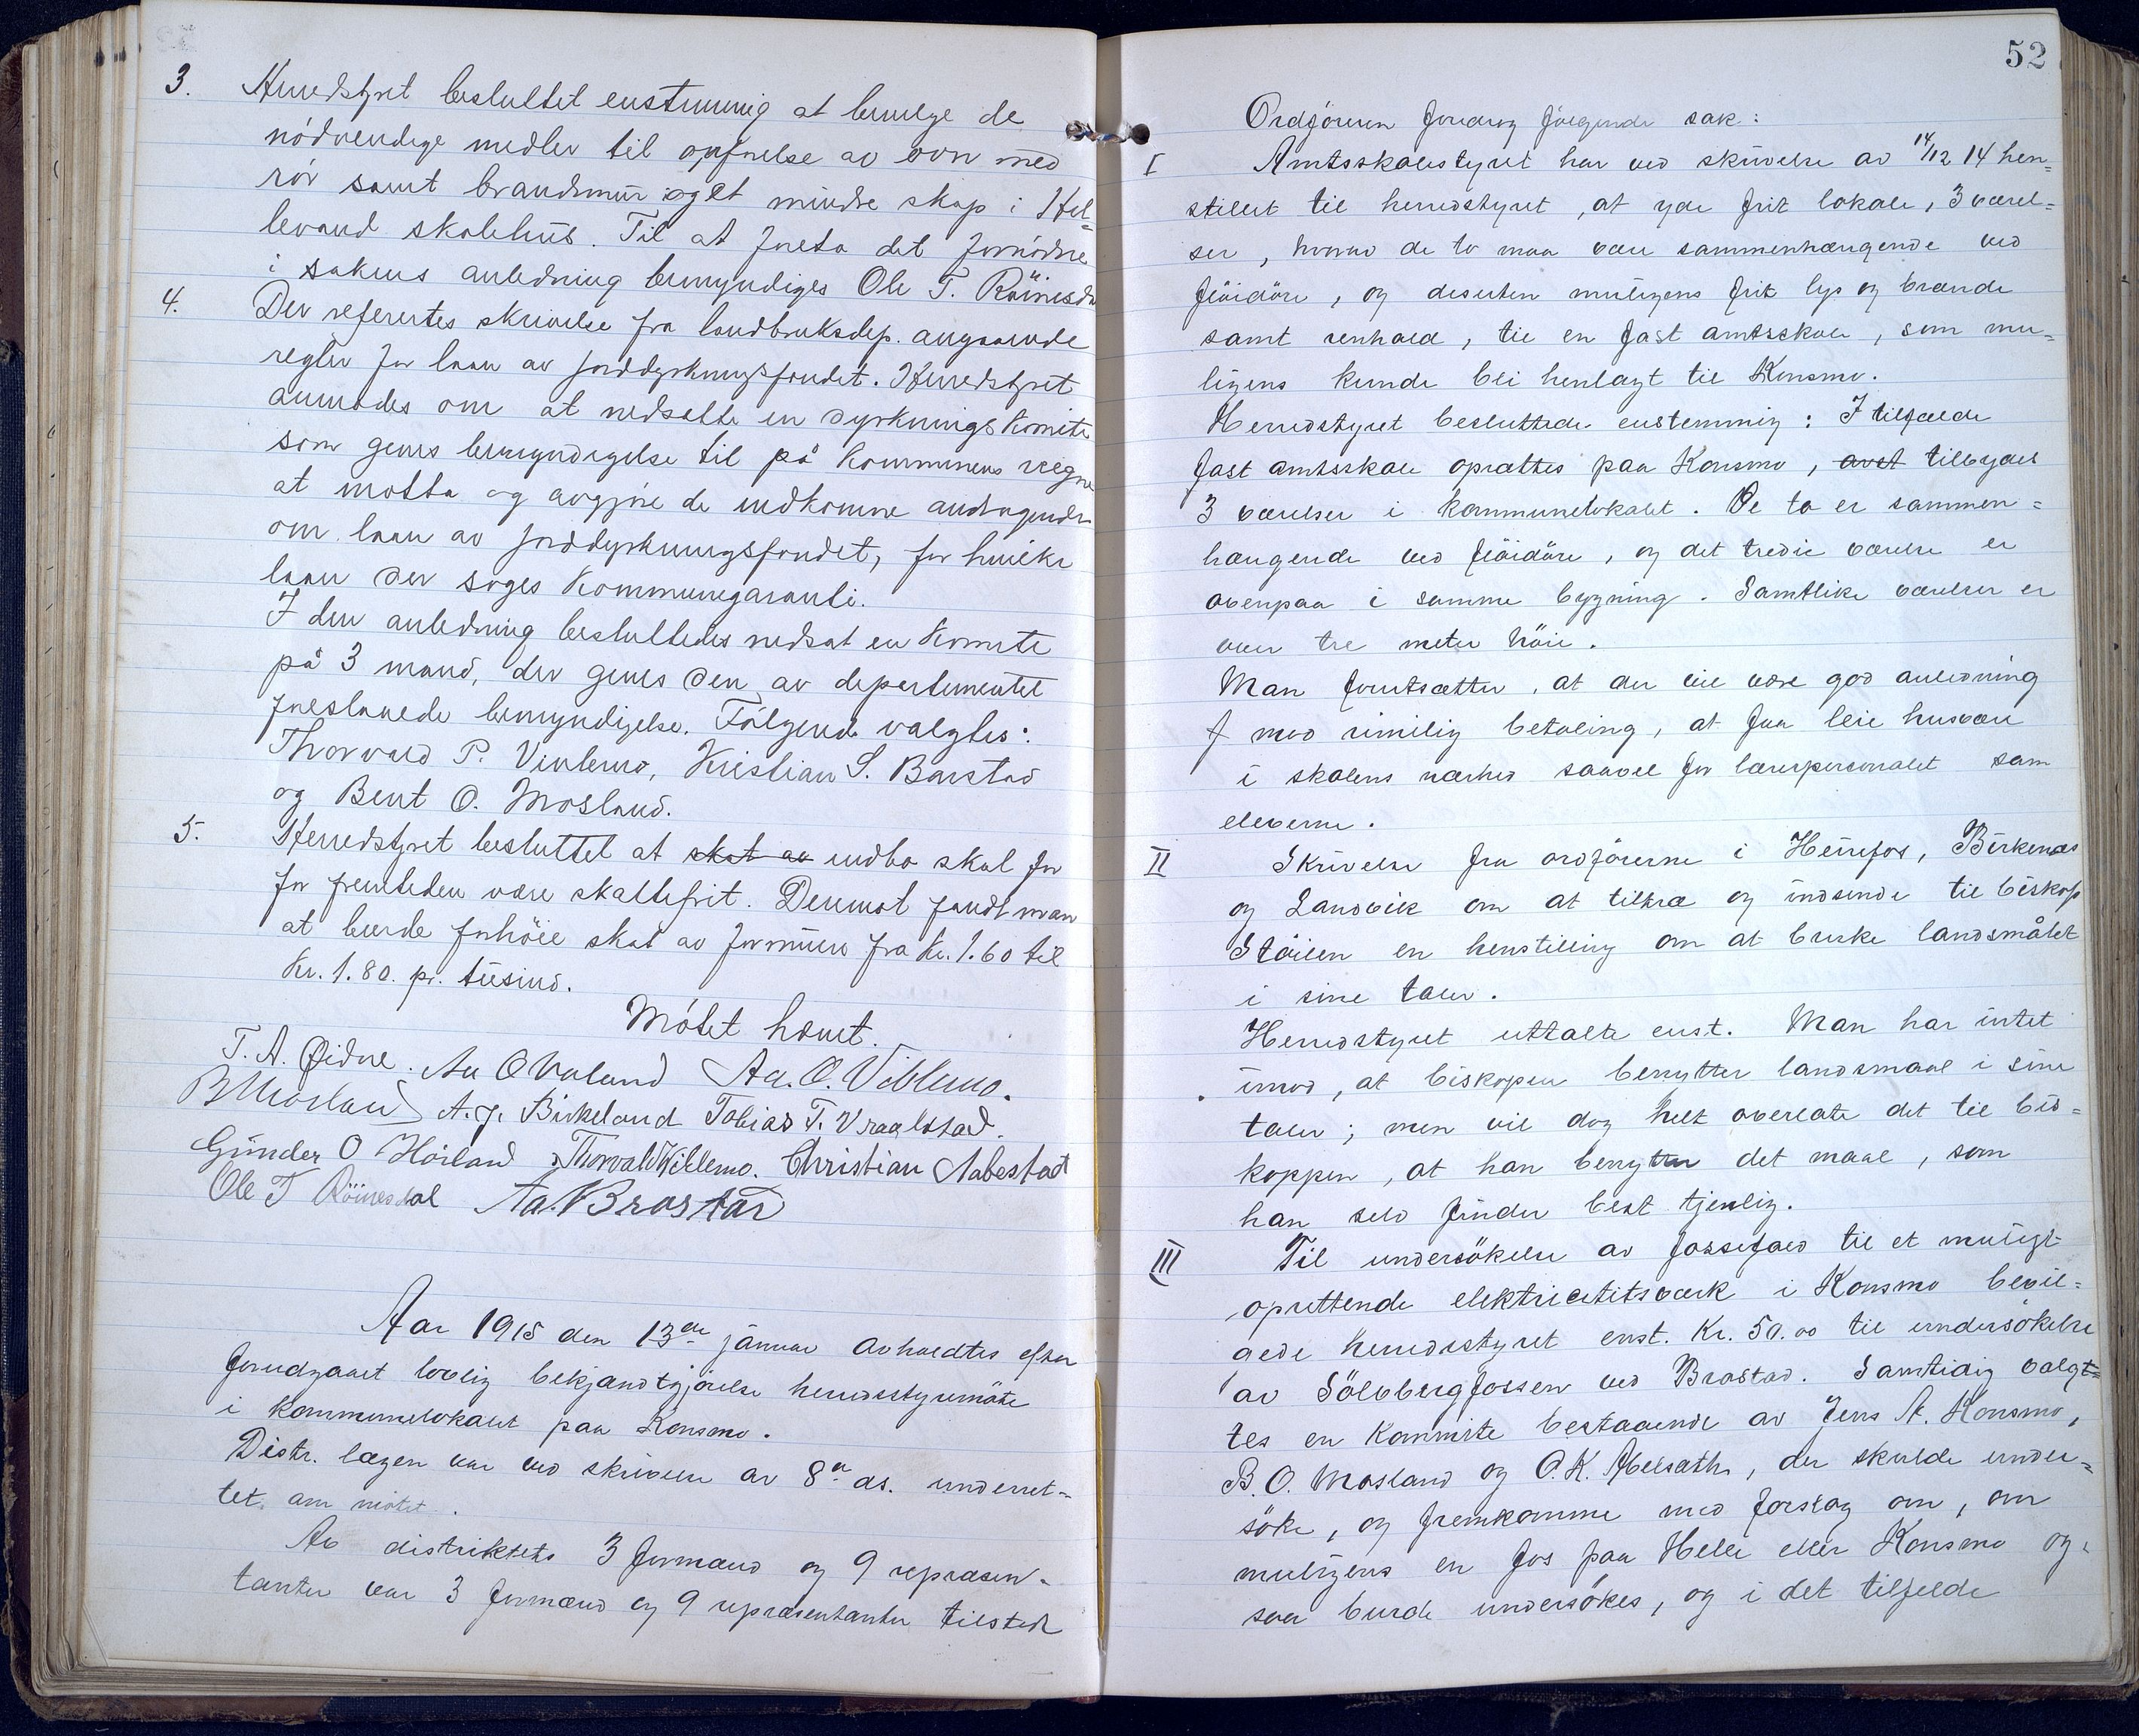 3. Herredstyret besluttet enstemmig at bevilge de
nödvendige midler til opførelse av ovn med
rör samt brandmur og et mindre skap i Hel-
levand skolehus. Til at foreta det fornödne
i sakens anledning bemyndiges Ole T. Röinesdal
4. Der refertes skrivelse fra landbruksdep. angaaende
regler for laan av jorddyrkningsfondet. Herredstyret
anmodes om at nedsætte en dyrkningskomite
som gives bemyndigelse til på kommunens vegne
at motta og avgjöre de indkomne andragender
om laan av jorddyrkningsfondet, for hvilke
laan der söges kommunegaranti.
I den anledning besluttedes nedsat en komite
på 3 mand, der gives den av departementet
foreslaaede bemyndigelse. Fölgende valgtes:
Thorvald P. Viblemo, Kristian S. Barstad
og Bent O. Mosland.
5. Herredstyret besluttet at skat av indbo skal for
for fremtiden være skattefrit. Derimot fandt man
at burde forhöie skat av formue fra kr. 1.60 til
kr. 1.80. pr. tusind.
Mötet hævet.
T. A. Øidne. Aa O Valand Aa. O. Viblemo.
B Mosland A. J. Birkeland Tobias T. Vraalstad.
Gunder O Höiland Thorvald Viblemo. Christian Aabestad
Ole T Röinesdal Aa. Brastad
Aar 1915 den 13de januar avholdtes efter
forudgaaet lovlig bekjandtgjörelse herredsstyremöte
i kommunelokalet paa Konsmo.
Distr. lægen var ved skrivelse av 8de ds. underret-
tet om mötet.
Av distriktets 3 formænd og 9 repræsen-
tanter var 3 formænd og 9 repræsentanter tilstede
52
Ordföreren foredrog fölgende sak:
I Amtsskolestyret har ved skrivelse av 14/12 14 hen=
stillet til herredstyret, at yde frit lokale, 3 værel=
ser, hvorav de to maa være sammenhængende ved
flöidöre, og desuten muligens frit lys og brænde
samt renhold, til en fast amtsskole, som mu=
ligens kunde bli henlagt til Konsmo.
Herredstyret besluttede enstemmig: I tilfælde
fast amtsskole oprættes paa Konsmo, avst tilbydes
3 værelser i kommunelokalet. De to er sammen=
hængende ved flöidöre, og det tredie værelse er
ovenpaa i samme bygning. Samtlike værelser er
over tre meter höie.
Man forutsætter, at der vil være god anledning
f mod rimelig betaling, at faa leie husvære
i skolens nærhed saavel for lærerpersonalet som
eleverne.
II Skrivelse fra ordförerne i Herefos, Birkenes
og Landvik om at tiltræ og indsende til biskop
Stöilen en henstilling om at bruke landsmålet
i sine taler.
Herredstyret uttalte enst. Man har intet
imod, at biskopen benytter landsmaal i sine
taler; men vil dog helt overlate det til bis=
koppen, at han benytter det maal, som
han selv finder best tjenlig.
III Til undersökelse av fossefald til et muligt
oprettende elektricitetsværk i Konsmo bevil=
gede herredsstyret enst. Kr. 50.00 til undersökelse
av Sölvbergfossen ved Brastad. Samtidig valgt=
tes en kommite bestaaende av Jens A. Konsmo,
B. O. Mosland og O. K. Abelsæth, der skulde under=
söke, og fremkomme med forslag om, om
muligens en fos paa Helle eller Konsmo og-
saa burde undersökes, og i det tilfelde